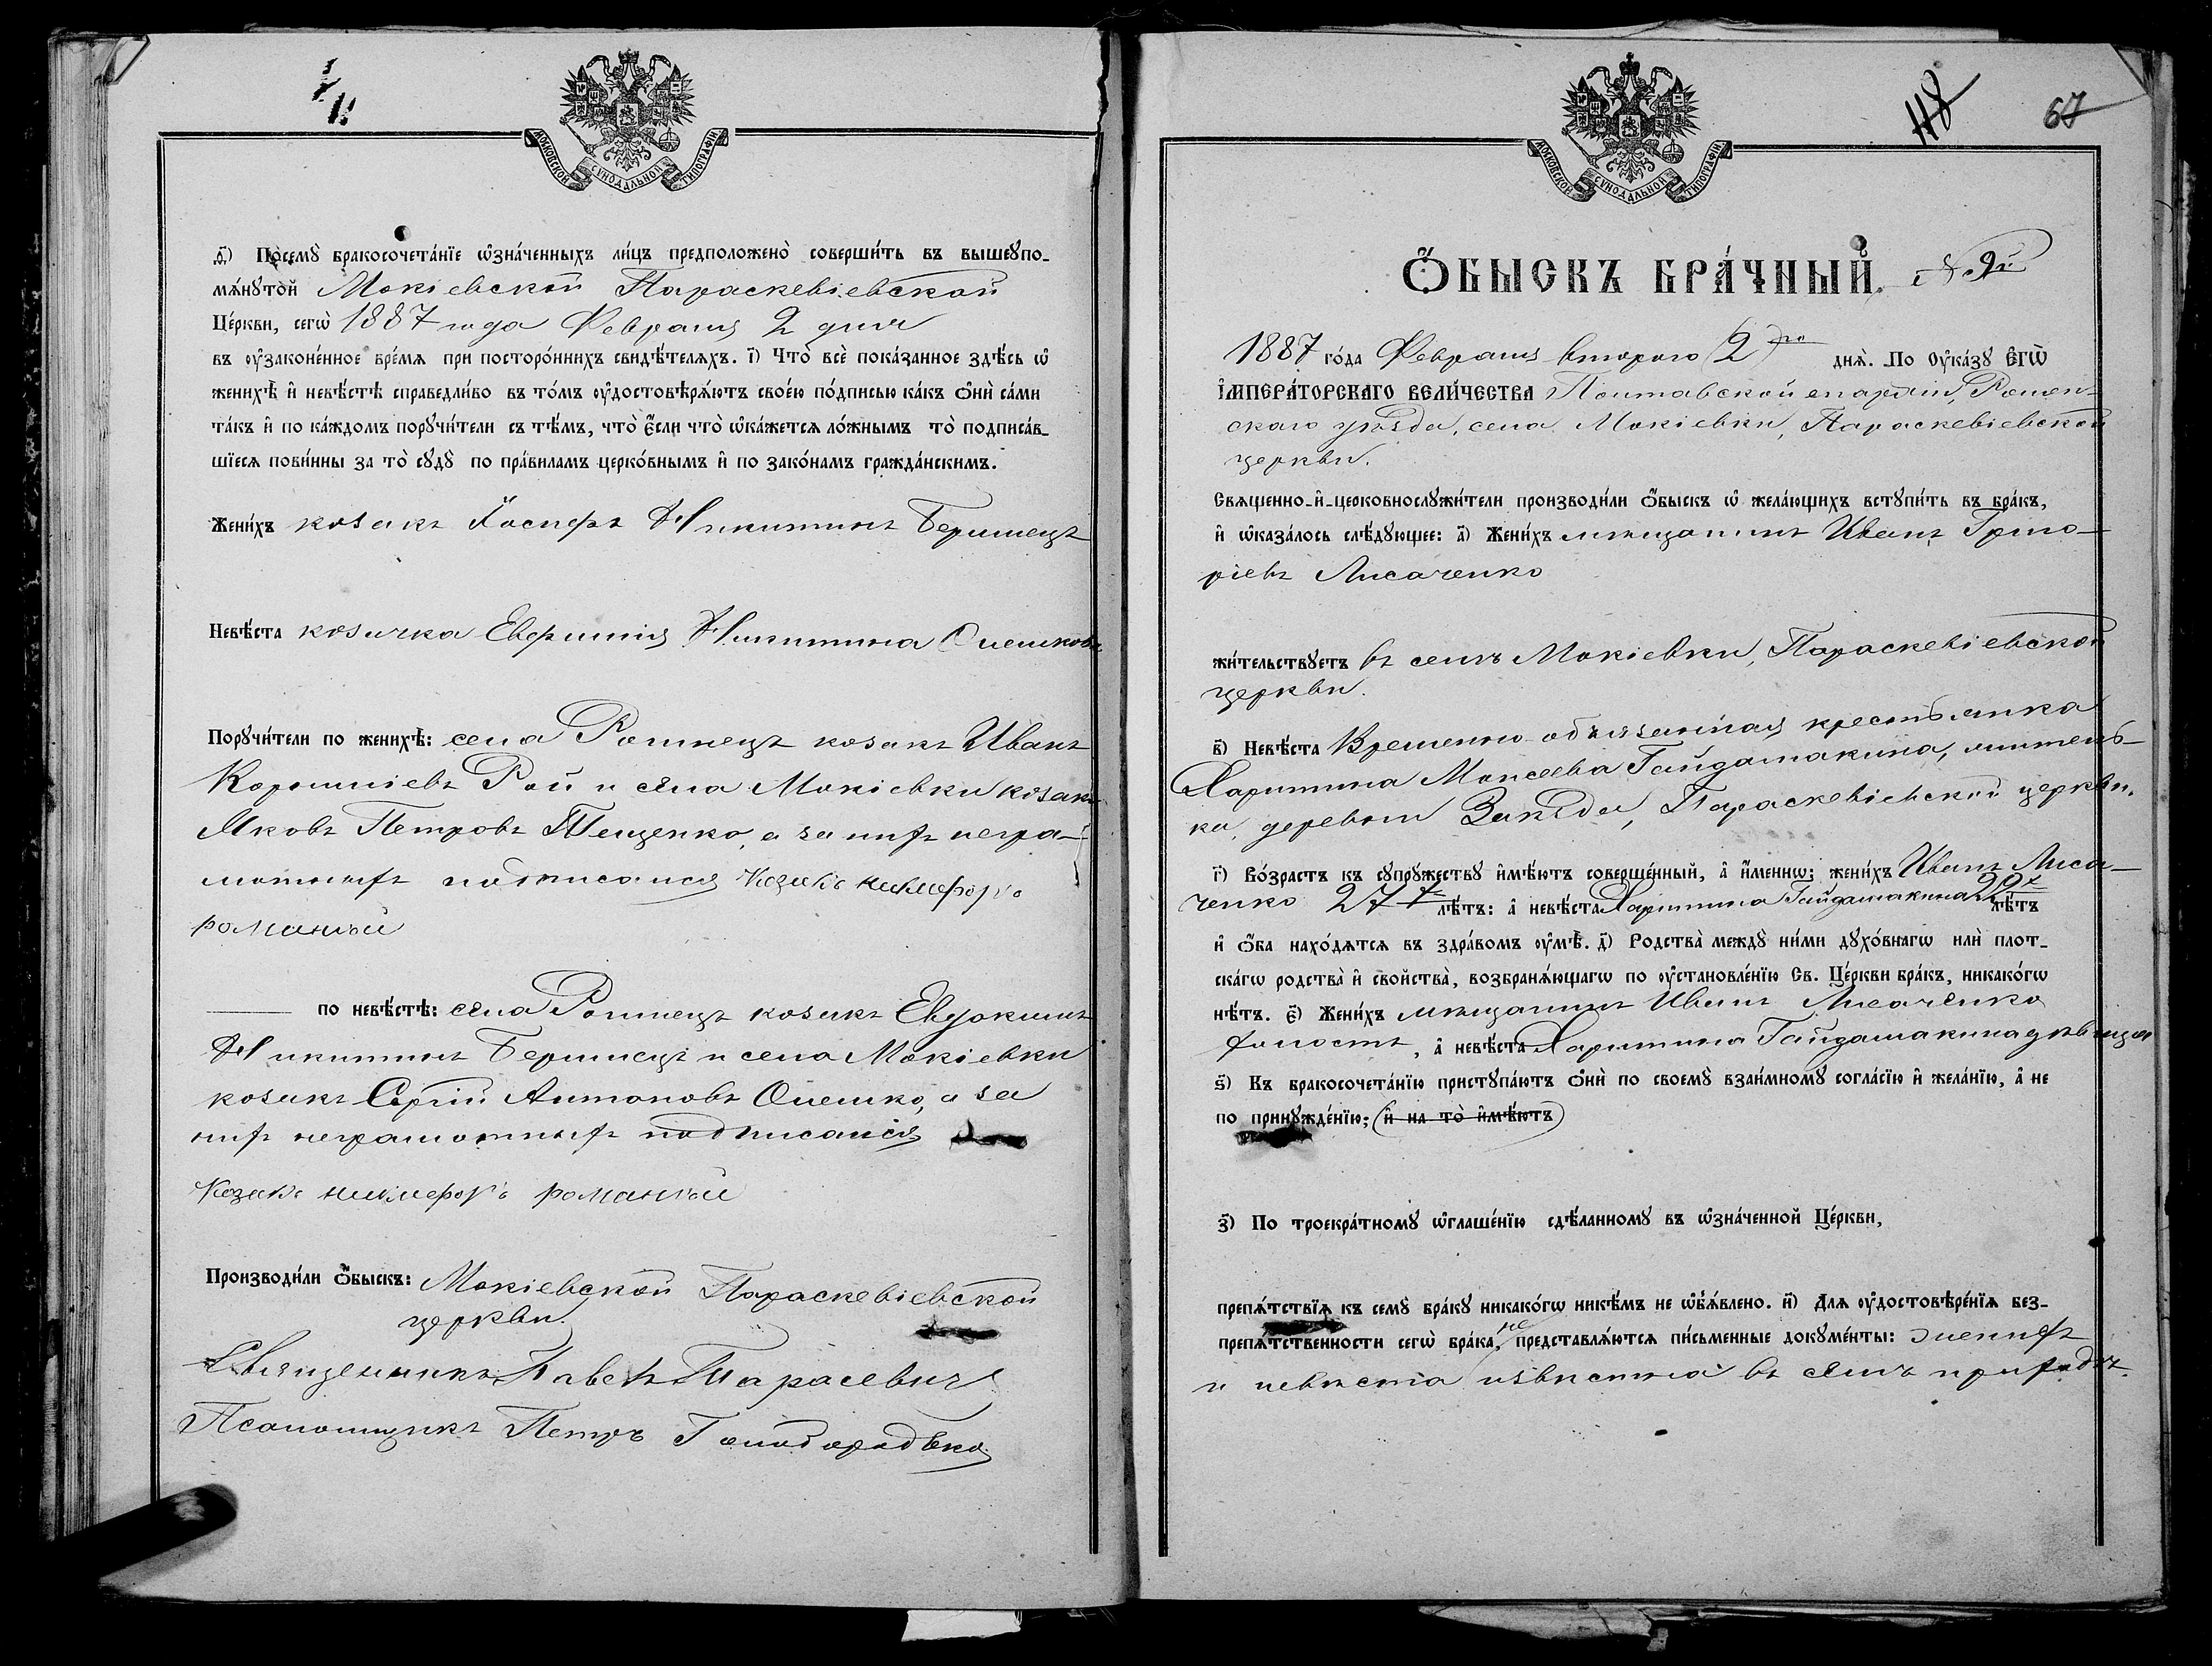 МОСКОВСКОЙ СѴНОДАЛЬНОЙ ТИПОГРАФІИ
ѳ҃) Посемꙋ̀ бракосочета́нїе ѡ҆зна́ченныхъ ли́цъ предположено̀ соверши́ть въ вышеꙋпо-
мѧ́нꙋтой Мокіевской Параскевіевской
Це́ркви, сегѡ̀ 1887 года Февраля 2 дня
въ ᲂу҆законе́нное вре́мѧ при посторо́ннихъ свидѣ́телѧхъ. і҃) Что̀ всѐ пока́занное здѣ́сь ѡ҆
женихѣ̀ и҆ невѣ́стѣ справедли́во въ то́мъ ᲂу҆достовѣрѧ́ютъ свое́ю по́дписью ка́къ Ѻ҆нѝ са́ми
та́къ и҆ по ка́ждомъ порꙋчи́тели съ тѣ́мъ, что̀ Е҆́сли что̀ ѡ҆ка́жетсѧ ло́жнымъ то̀ подписа́в-
шїесѧ пови́нны за то̀ сꙋдꙋ̀ по пра́виламъ церко́внымъ и҆ по зако́намъ гражда́нскимъ.
Жени́хъ козакъ Іосифъ Никитинъ Беримецъ
Невѣ́ста козачка Евфимія Никитина Олешкова
Порꙋчи́тели по женихѣ̀: села Ромнецъ козакъ Иванъ
Корниліевъ Рой и села Мокіевки козакъ
Яковъ Петровъ Тещенко, а за нихъ негра-
мотныхъ подписался козакъ никифоръ
романѣй
по невѣ́стѣ: села Ромнецъ козакъ Евдокимъ
Никитинъ Беримецъ и села Мокіевки
козакъ Сергій Антоновъ Олешко, а за
нихъ неграмотныхъ подписался
Козакъ никифоръ романѣй
Производи́ли ѻ҆́быскъ: Мокіевской Параскевіевской
церкви.
Священникъ Павелъ Тарасевичъ
Псаломщикъ Петръ Голобородько
118
67
МОСКОВСКОЙ СѴНОДАЛЬНОЙ ТИПОГРАФІИ
Ѻ҆́БЫСКЪ БРА́ЧНЫЙ. № 9й
1887 го́да Февраля втораго (2)го днѧ̀. По Оу҆ка́зꙋ Е҆ГѠ̀
І҆МПЕРА́ТОРСКАГО ВЕЛИ́ЧЕСТВА Полтавской епархіи, Ромен-
скаго уѣзда, села Мокіевки, Параскевіевской
церкви.
Свѧщенно-и҆-церковнослꙋжи́тели производи́ли ѻ҆́быскъ ѡ҆ жела́ющихъ встꙋпи́ть въ бра́къ,
и҆ ѡ҆каза́лось слѣ́дꙋющее: а҃) Жени́хъ мѣщанинъ Иванъ Григо-
ріевъ Лисаченко
жи́тельствꙋетъ въ селѣ Мокіевки, Параскевіевской
церкви.
в҃) Невѣ́ста Временно-обязанная крестьянка
Харитина Моисеева Гайдамакина, житель-
ка, деревни Заѣзда, Параскевіевской церкви.
г҃) Во́зрастъ къ сꙋпрꙋ́жествꙋ и҆мѣ́ютъ соверше́нный, а҆ и҆́менно: жени́хъ Иванъ Лиса-
ченко 27 лѣ́тъ: а҆ невѣ́ста Харитина Гайдамакина лѣ́тъ
и҆ ѻ҆́ба нахо́дѧтсѧ въ здра́вомъ ᲂу҆мѣ̀. д҃) Родства̀ междꙋ̀ ни́ми дꙋхо́внагѡ и҆лѝ плот-
ска́гѡ родства̀ и҆ свойства̀, возбранѧ́ющагѡ по ᲂу҆становле́нїю Св. Це́ркви бра́къ, никако́гѡ
нѣ́тъ. є҃) Жени́хъ мѣщанинъ Иванъ Лисаченко
холостъ, а҆ невѣ́ста Харитина Гайдамакина дѣвица
ѕ҃) Къ бракосочета́нїю пристꙋпа́ютъ Ѻ҆нѝ по своемꙋ̀ взаи́мномꙋ согла́сїю и҆ жела́нїю, а҆ не
по принꙋжде́нїю; (и҆ на то̀ и҆мѣ́ютъ)
з҃) По троекра́тномꙋ ѡ҆глаше́нїю сдѣ́ланномꙋ въ ѡ҆зна́ченной Це́ркви,
препѧ́тствїѧ къ семꙋ̀ бра́кꙋ никако́гѡ никѣ́мъ не ѡ҆б̾ѧ́влено. и҃) Длѧ ᲂу҆достовѣре́нїѧ без-
препѧ́тственности сегѡ̀ бра́ка, не представлѧ́ютсѧ пи́сьменные докꙋме́нты: женихъ
и невѣста извѣстна въ семъ приходѣ.